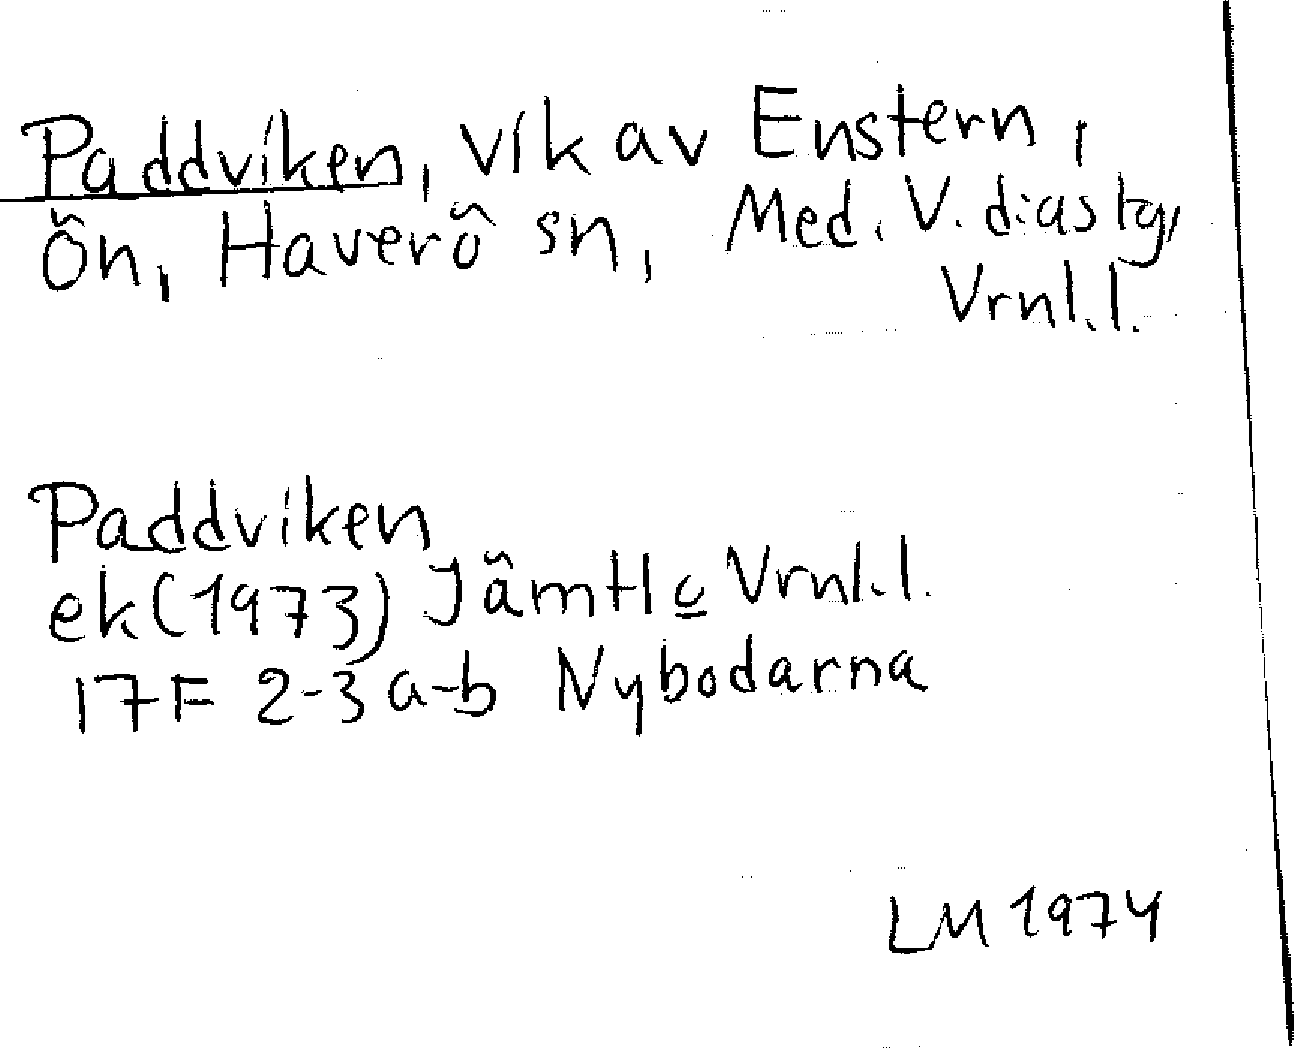 Paddviken, vik av Enstern,
Ön, Haverö sn, Med. V. diastg,
Vrnl.l.
Paddviken
ek (1973) Jämtl o Vrnl.l.
17F 2-3 a-b Nybodarna
LM 1974